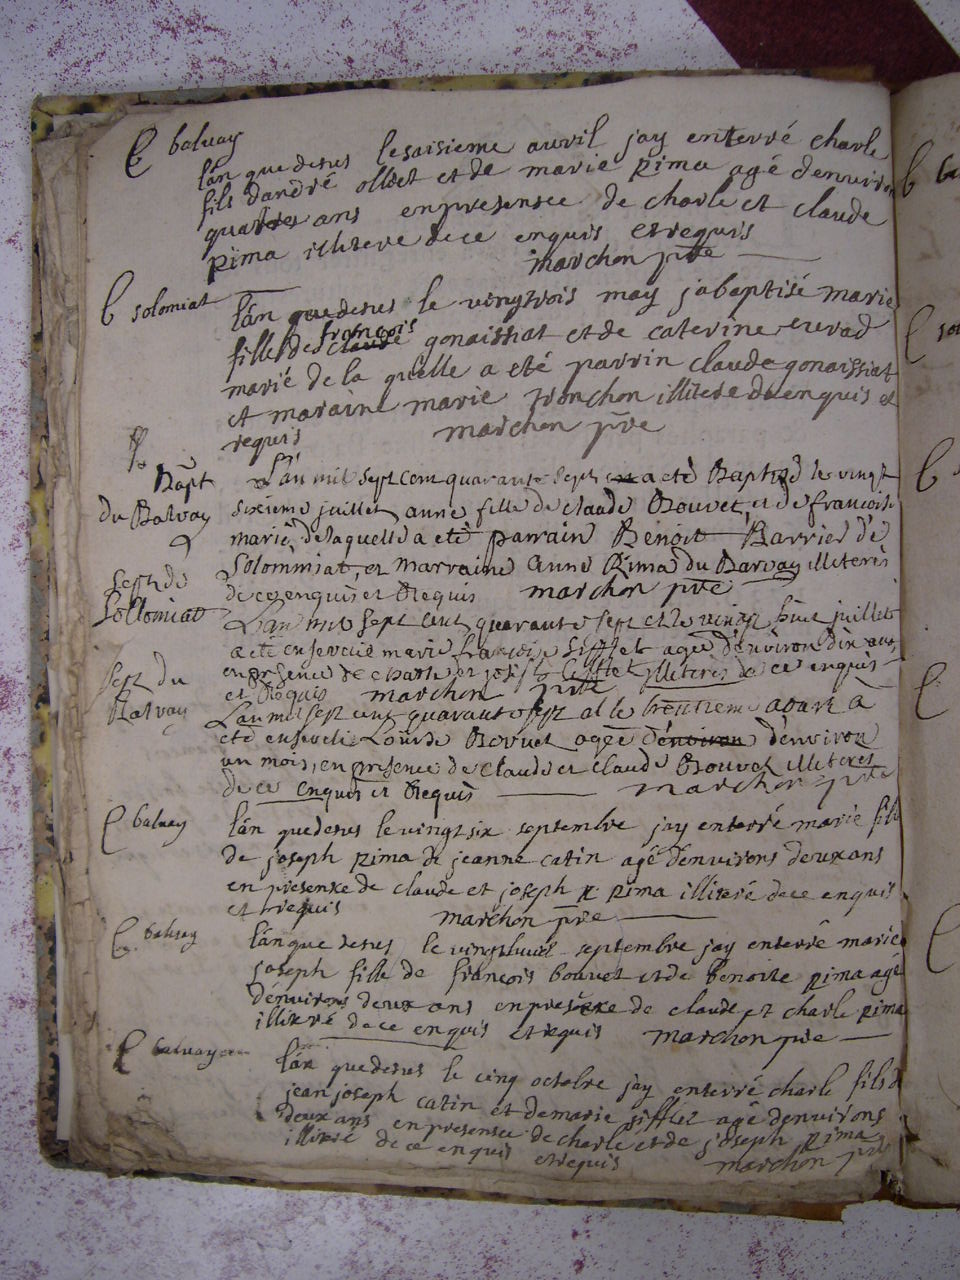 E balvay
lán que desus le saisieme avvril jay enterré charle
fils dandré olliet et de marie pima agé denviron
quatres ans en presensce de charle et claude
pima illitere de ce enquis et requis
marchon p̄tre
b solomiat
lán que desus le vingtrois may ja baptisé marie
fille de françois claude gonaissiat et de caterine evrad
marié de la quelle a eté parrin claude gonaissiat
et maraine marie tronchon illitere de enquis et
requis marchon p̄re
Bapt
du Balvay
L'an mil sept cent quarante sept a eté Baptisé le vingt
sixieme juillet anne fille de claude Bouvet et de francoise
marié, de laquelle a eté parrain Benoit Barrier de
Solommiat, et marraine anne Pima du Barvay illiteres
de ce enquis et Requis marchon p̄tre
Sept de
Sollomiat
L'an mil sept cent quarante sept et le vingt huit juillet
a eté enseveli marie françoise Sifflet agée d'environ dix ans,
en presence de charle et joseph Sifflet illiteres de ce enquis
et Requis marchon p̄tre
Sept du
Balvay
L'an mil sept cent quarante sept et le trentieme aoust a
eté enseveli Bouvet agée denviron d'environ
un mois, en presence de claude et claude Bouvet illiteres
de ce enquis et Requis marchon p̄re
E balvay
lán que desus le vingt six septembre jay enterré marie fille
de joseph pima & jeanne catin agé denvirons deux ans
en presense de claude et joseph pima illiteré de ce enquis
et requis marchon p̄re
E balvay
lán que desus le vingthuit septembre jay enterré marie
joseph fille de françois bouvet et de benoite pima agé
dénvirons deux ans en presence de claude et charle pima
illitéré de ce enquis et requis marchon p̄re
E balvay
lán que desus le cinq octobre jay enterré charle fils de
jean joseph catin et de marie sifflet agé denvirons
deux ans en presensce de charle et de joseph pima
illitéré de ce enquis et requis marchon p̄re